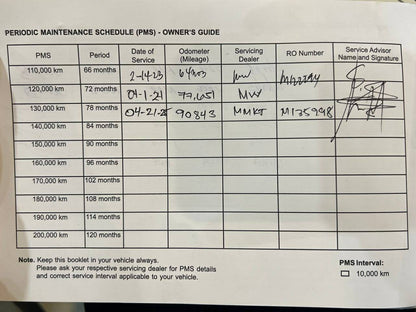 PERIODIC MAINTENANCE SCHEDULE (PMS) - OWNER'S GUIDE
PMS Period Date of Service Odometer (Mileage) Servicing Dealer RO Number Service Advisor Name and Signature
110,000 km 66 months 2-14-23
120,000 km 72 months 04-1-21 77,651 MW
130,000 km 78 months 04-21-25 90843 MMKT M135998
140,000 km 84 months
150,000 km 90 months
160,000 km 96 months
170,000 km 102 months
180,000 km 108 months
190,000 km 114 months
200,000 km 120 months
Note. Keep this booklet in your vehicle always.
Please ask your respective servicing dealer for PMS details
and correct service interval applicable to your vehicle.
PMS Interval:
10,000 km